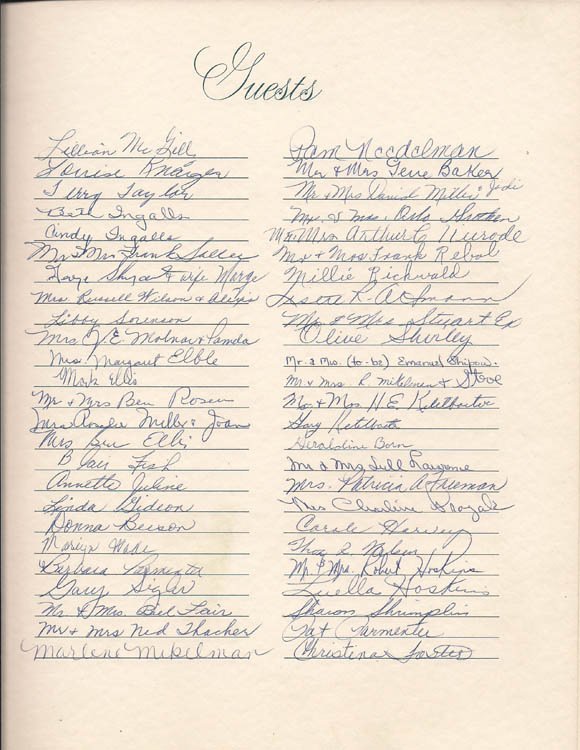 Guests
Lillian McGill
Louise
Terry Taylor
Beth Ingalls
Cindy Ingalls
Mr & Mrs Frank
& wife Marge
Mrs. Russell Wilson &
Libby Sorenson
Mrs J.E. Molnar & Pamda
Mrs. Margaret Elble
Mark Ellis
Mr & Mrs Ben Rosen
Mrs Rosalie Miller & Joan
Mrs Ben Ellis
Blair Fish
Annette Juline
Linda Gideon
Donna Beeson
Marilyn Wake
Barbara
Gary Sigler
Mr & Mrs Bill Fair
Mr & Mrs Ned Thacker
Marlene Mikelman
Pam Needelman
Mr & Mrs Gene Baker
Mr & Mrs David Miller & Jodi
Mr. & Mrs.
Mr & Mrs Arthur C. Nurode
Mr & Mrs Frank Rebol
Millie Richwald
Mr & Mrs Stuart Ex
Olive Shirley
Mr. & Mrs. (to-be) Emanuel Shipow.
Mr. & Mrs. R. Mikelman & Steve
Mr. & Mrs. H E. Kittlharter
Gary
Geraldine Born
Mr & Mrs Bill
Mrs. Patricia A Freeman
Mrs Charline
Carole Harvey
Thos S. Nelson
Mr. & Mrs. Robert Hoskins
Luella Hoskins
Sharon Shrimplin
Pat Parmenter
Christina